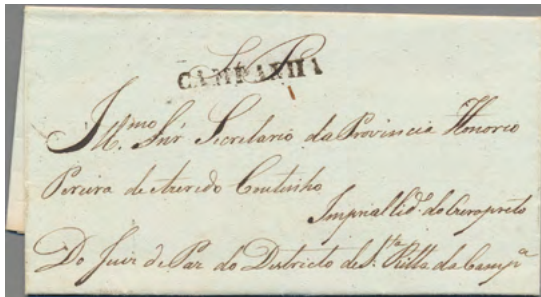 S. P.
CAMPANHA
Ill.mo Snr Secretario da Provincia Honorio
Pereira de Azeredo Coutinho
Imperial Cid.e do Ouro preto
Do Juiz de Paz do Districto de S.ta Ritta da Camp.a